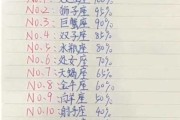 NO.2: 狮子座 95%
NO.3: 巨蟹座 90%
NO.4: 双子座 85%
NO.5: 水瓶座 80%
NO.6: 处女座 70%
NO.7: 天蝎座 65%
NO.8: 金牛座 60%
NO.9: 白羊座 50%
NO.10: 射手座 40%